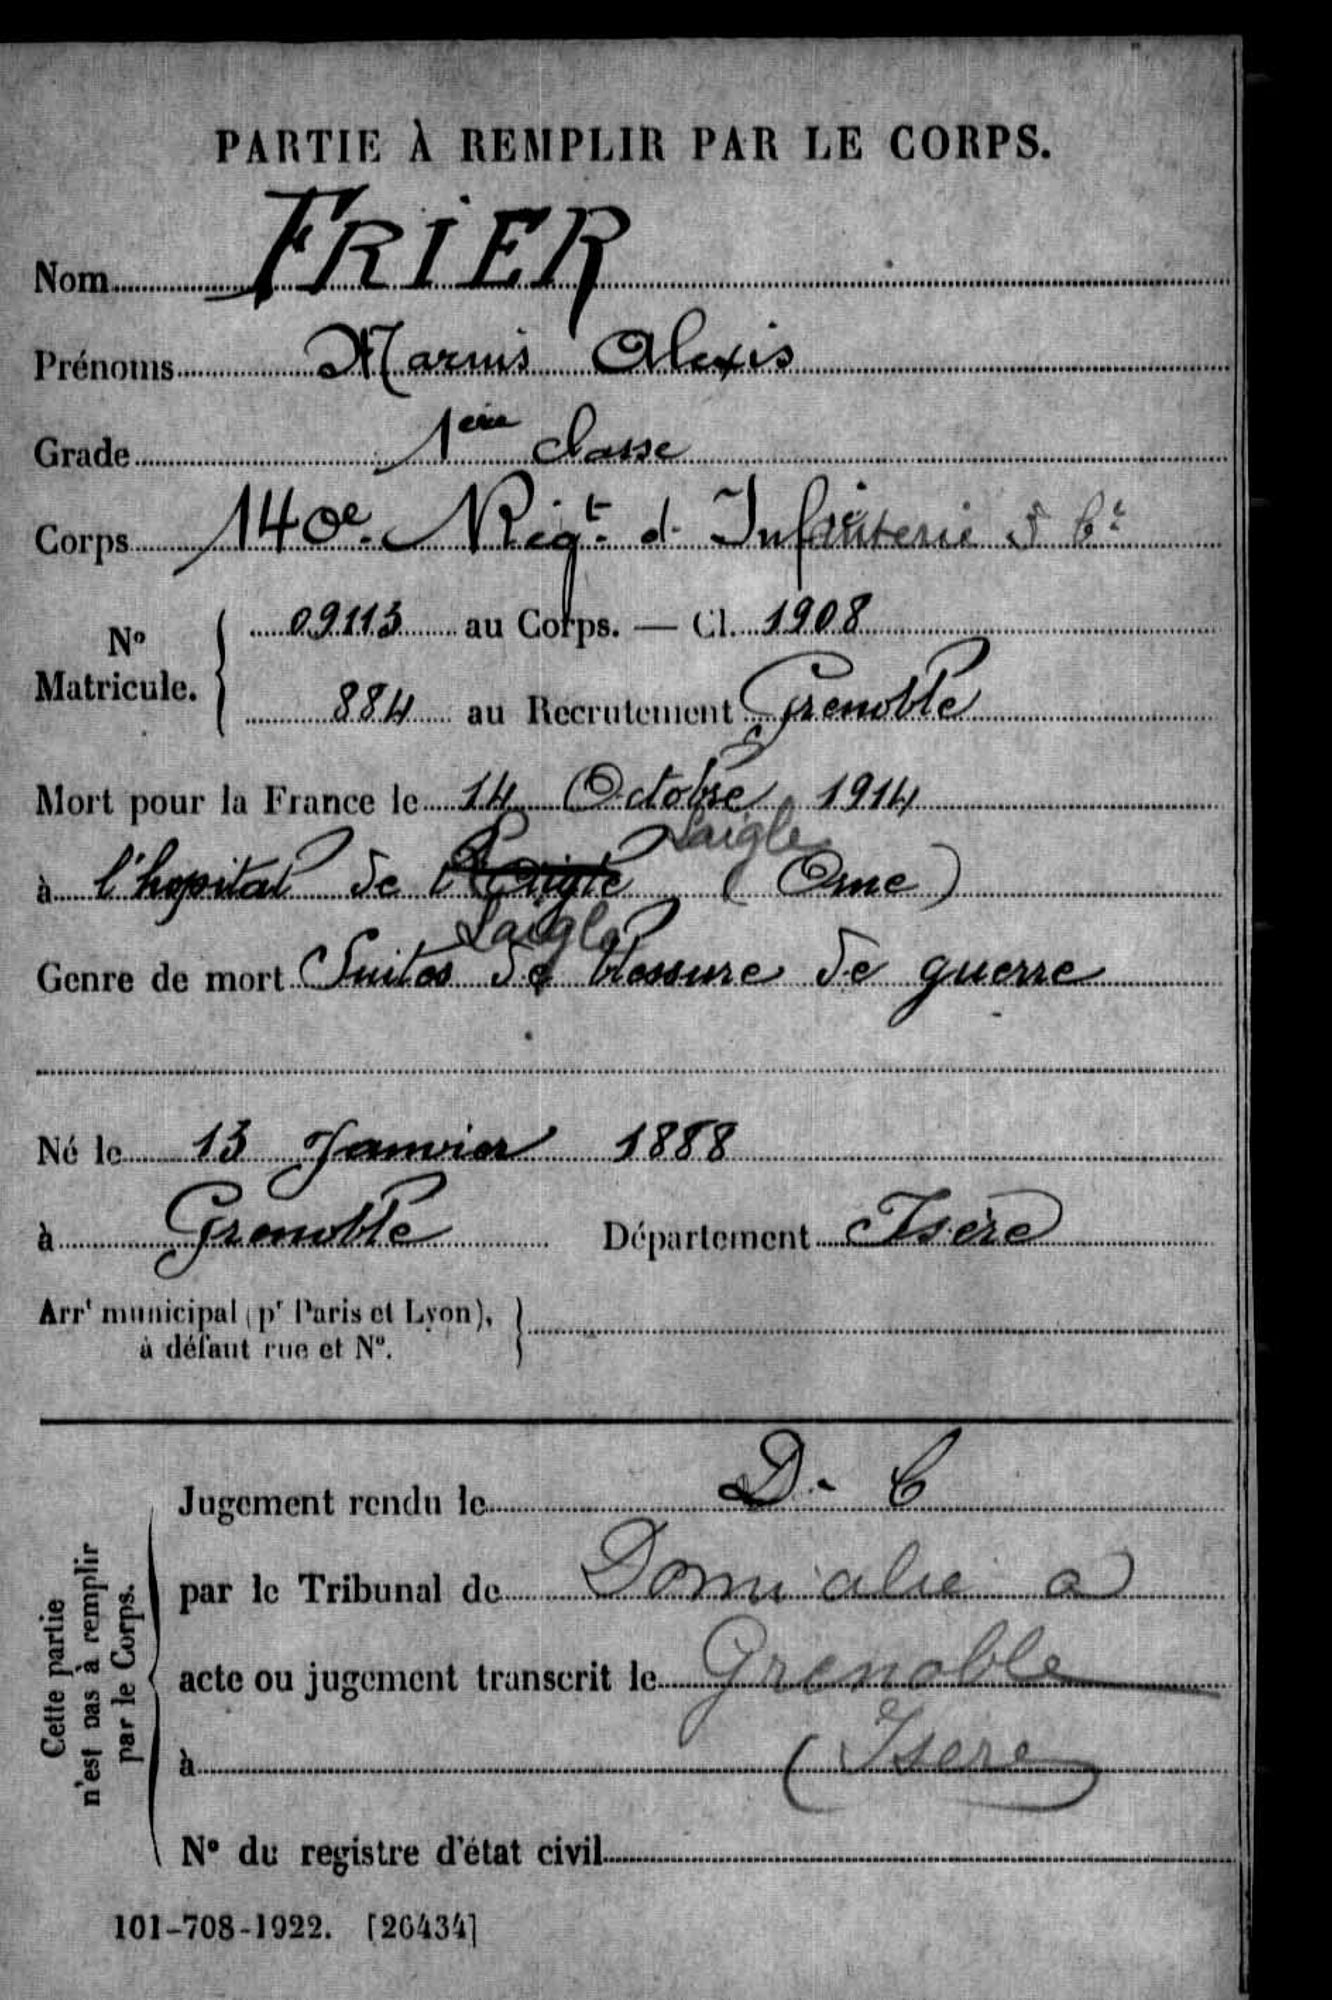 PARTIE À REMPLIR PAR LE CORPS.
Nom FRIER
Prénoms Marius Alexis
Grade 1ère classe
Corps 140e Régt d'Infanterie
N° Matricule. 09113 au Corps. — Cl. 1908
884 au Recrutement Grenoble
Mort pour la France le 14 Octobre 1914
Laigle
à l'hopital de (Orne)
Laigle
Genre de mort Suites de blessure de guerre
Né le 13 Janvier 1888
à Grenoble Département Isère
Arrt municipal (pr Paris et Lyon),
à défaut rue et N°.
Cette partie
n'est pas à remplir
par le Corps.
Jugement rendu le D. C
par le Tribunal de Domicilié a
acte ou jugement transcrit le Grenoble
à (Isere
N° du registre d'état civil
101-708-1922. [26434]